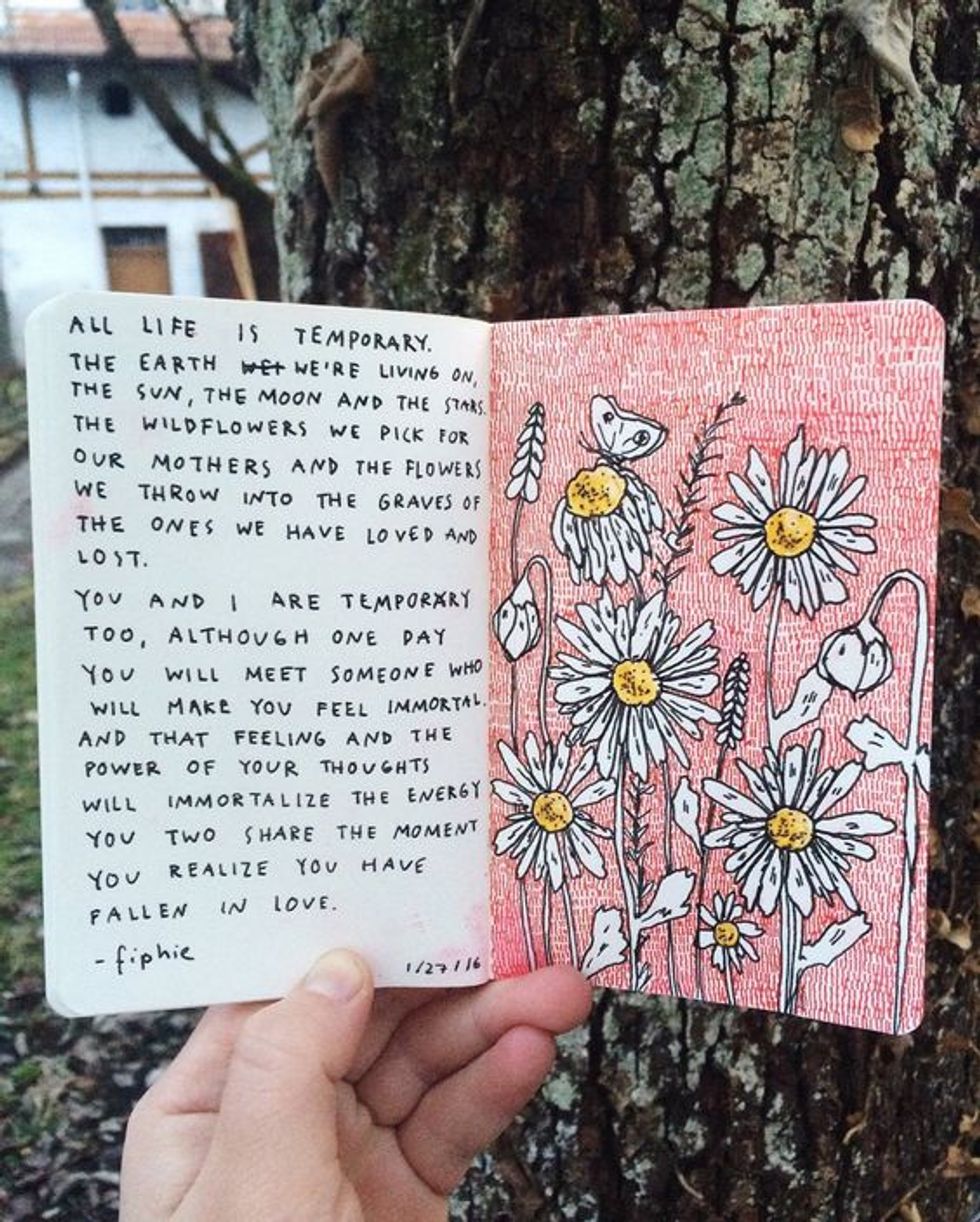 ALL LIFE IS TEMPORARY.
THE EARTH WE'RE LIVING ON,
THE SUN, THE MOON AND THE STARS.
THE WILDFLOWERS WE PICK FOR
OUR MOTHERS AND THE FLOWERS
WE THROW INTO THE GRAVES OF
THE ONES WE HAVE LOVED AND
LOST.
YOU AND I ARE TEMPORARY
TOO, ALTHOUGH ONE DAY
YOU WILL MEET SOMEONE WHO
WILL MAKE YOU FEEL IMMORTAL.
AND THAT FEELING AND THE
POWER OF YOUR THOUGHTS
WILL IMMORTALIZE THE ENERGY
YOU TWO SHARE THE MOMENT
YOU REALIZE YOU HAVE
FALLEN IN LOVE.
- fiphie
1/27/16